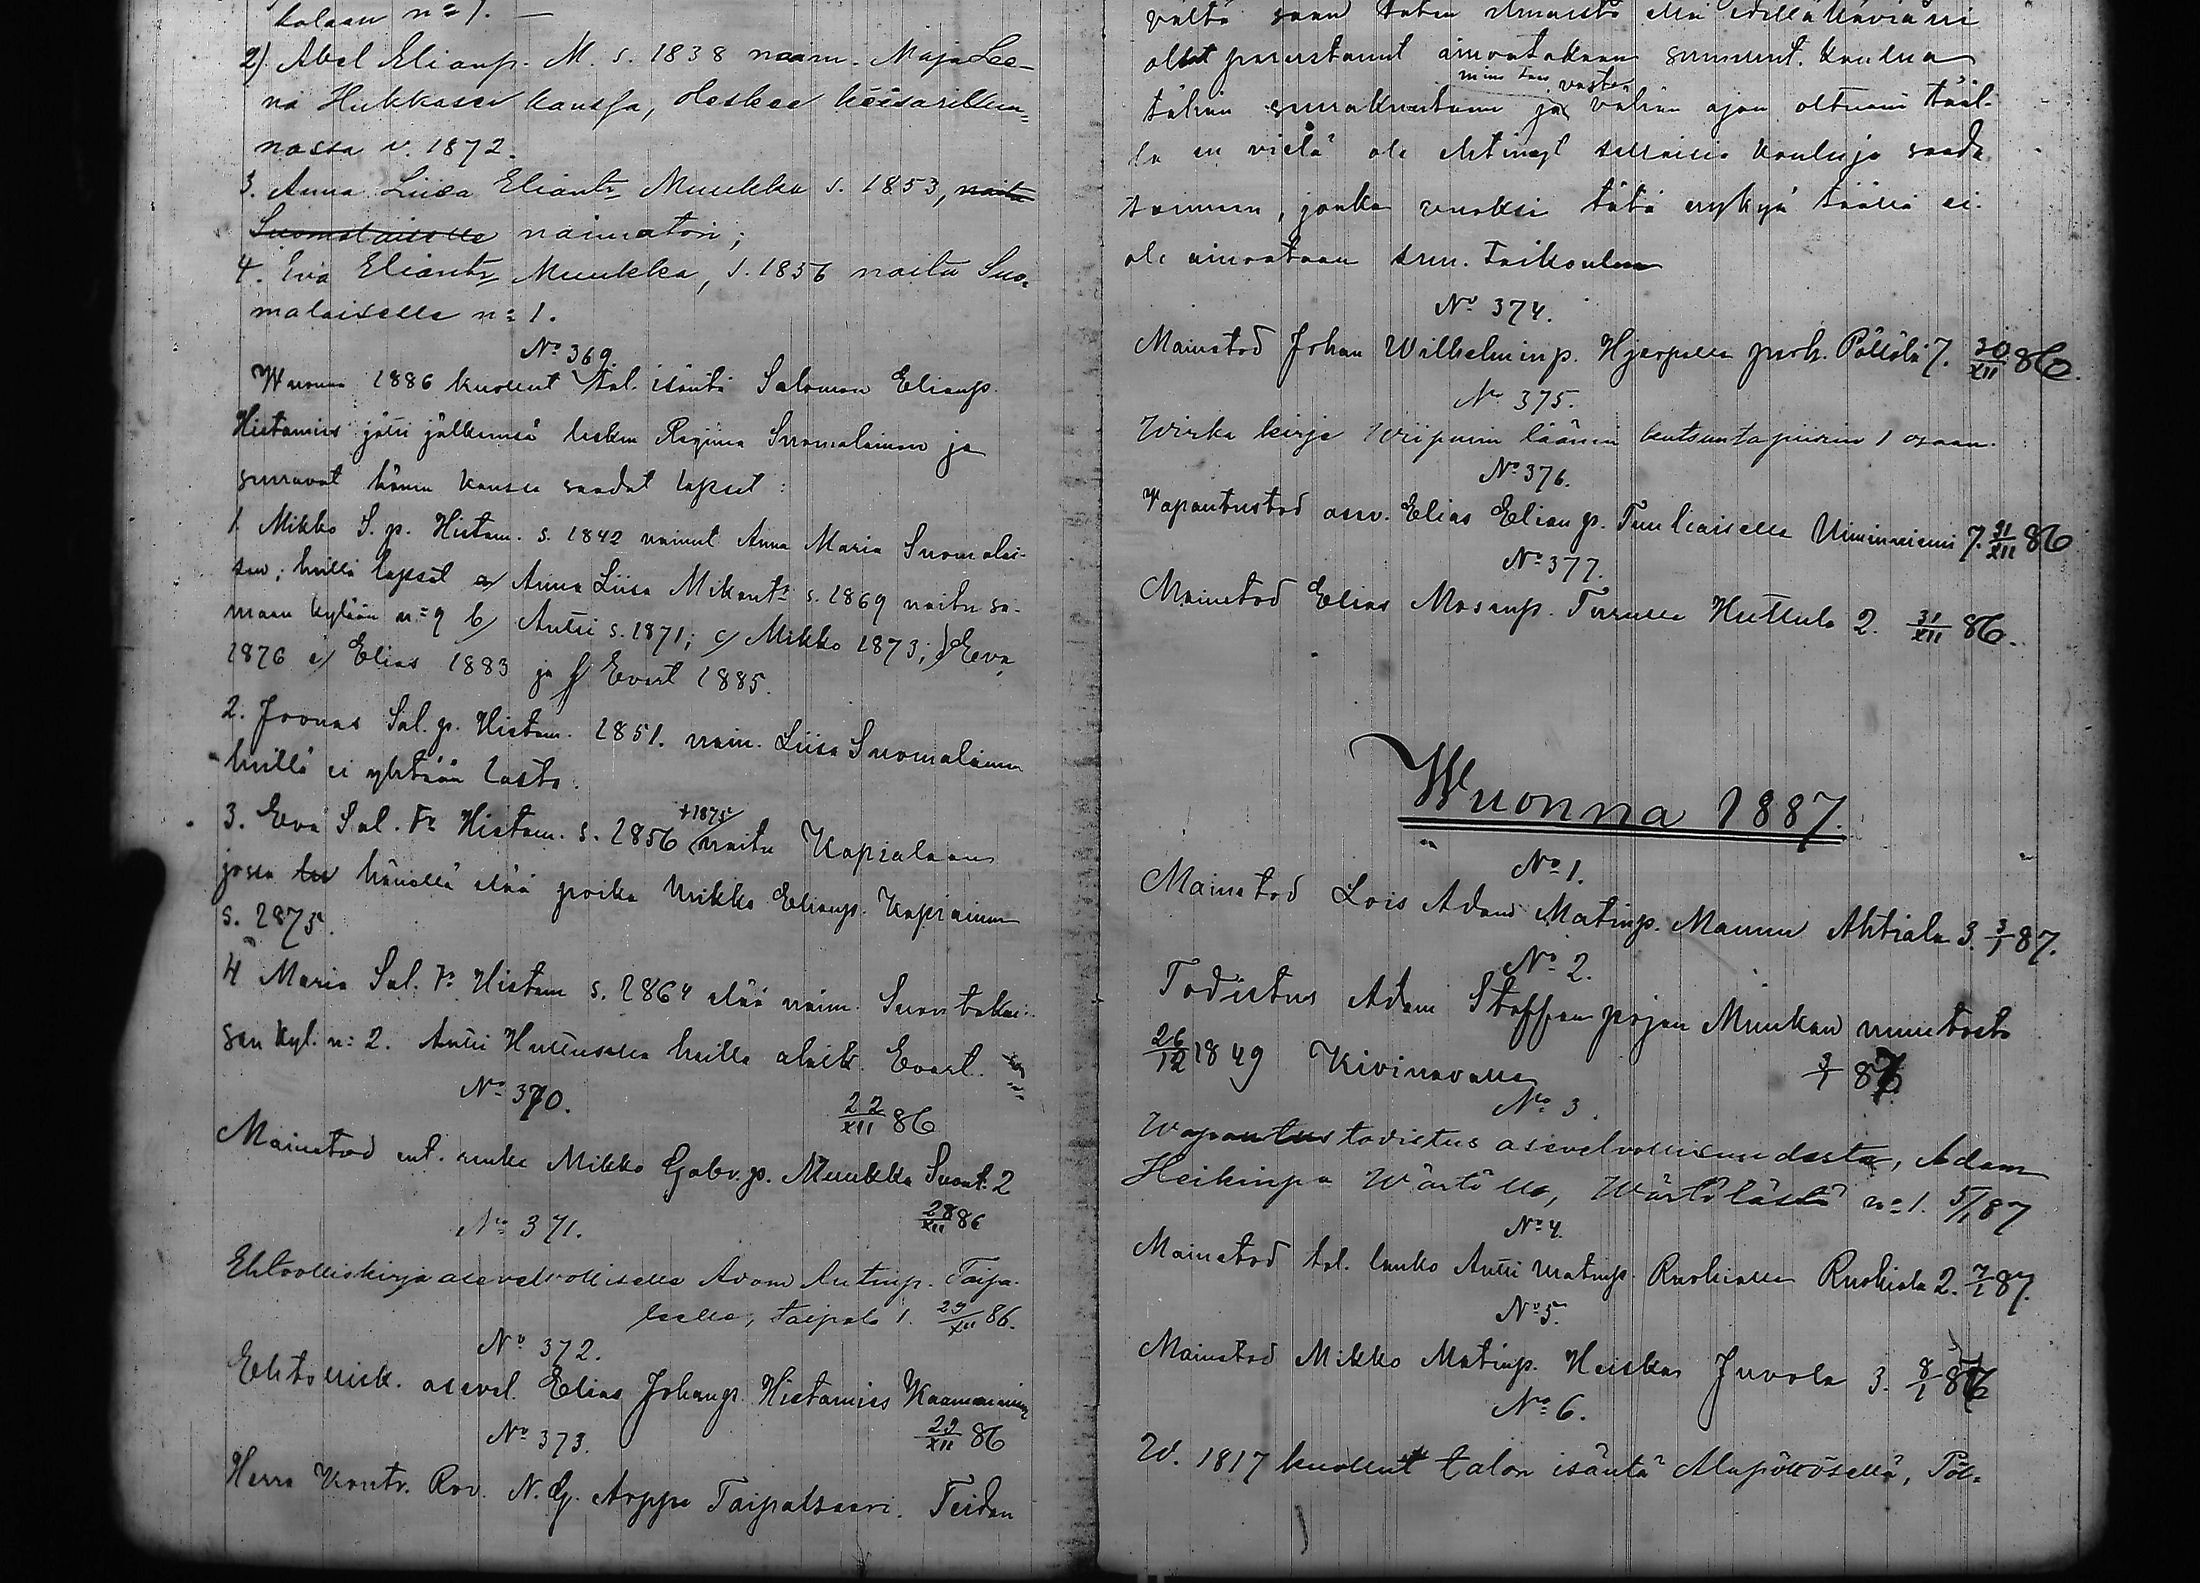 kolaan n:=1. —
2). Abel Elianp. M. s. 1838 naim. Maja Lee-
na Hukkasen kanssa, oleskee keisarikun-
nassa v. 1872.
3. Anna Liisa Eliantr Muukka s. 1853, naitu
Suomalaiselle naimaton;
4. Eva Eliantr Muukka, s. 1856 naitu Suo-
malaiselle n:=1.
No 369.
Wuonna 1886 kuollut tal. isäntä Salomon Elianp.
Hietamies jätti jälkeensä lesken Regiina Suomalainen ja
seuraavat hänen kanssa saadut lapset:
1. Mikko S. p. Hietam. s. 1842 nainut Anna Maria Suomalai-
sen; heillä lapset a/ Anna Liisa Mikontr s. 1869 naitu sa-
maan kylään n:=9 b/ Antti s. 1871; c/ Mikko 1873; d/ Eeva
1876 e/ Elias 1883 ja f/ Evert 1885.
2. Joonas Sal. p. Hietam. 1851. naim. Liisa Suomalainen
heillä ei yhtään lasta.
3. Eva Sal. tr Hietam. s. 1856 +1875 naitu Kapialaan
jossa hänellä elää poika Mikko Elianp. Kapiainen
s. 1875.
4 Maria Sal. tr Hietam s. 1864 elää naim. Suontakai-
sen kyl. n: 2. Antti Huttuselle heillä alaik. Evert.
No 370.
22/XII 86
Mainetod ent. renki Mikko Gabr. p. Muukka Suont. 2
No 371.
28/XII 86
Ehtoolliskirja asevelvolliselle Adam Antinp. Taipa-
leelle, Taipale 1. 29/XII 86.
No 372.
Ehtoollisk. asevel. Elias Johanp. Hietamies Kaamaniemi
No 373.
29/XII 86
Herra Kontr. Rov. N. G. Arppe Taipalsaari. Teidän
olla perustanut ainoatakaan koulua
tähän seurakuntaan ja vähän ajan oltuani tääl-
lä en vielä ole ehtinyt sellaisia kouluja saada
toimeen, jonka vuoksi tätä nykyä täällä ei
ole ainoataan srn. Taikoulua
No 374.
Mainetod Johan Wilhelminp. Hjerpelle Pöllölä 7. 30/XII 86.
No 375.
Wirka kirje Wiipurin läänin kutsuntapiirin 1 osaan.
No 376.
Vapautustod asev. Elias Elian p. Tuuliaiselle Uiminniemi 7. 31/XII 86
No 377.
Mainetod Elias Masanp. Turulle Huttula 2. 31/XII 86.
Wuonna 1887.
No 1.
Mainetod Lois Adam Matinp. Mannu Ahtiala 3. 3/1 87.
No 2.
Todistus Adam Staffan pojan Muukan muutosta
26/12 1849 Kivinavalle 3/1 87
No 3.
Wapautus todistus asevelvollisuudesta, Adam
Heikinpa Wärtölle, Wärtölästä n:=1. 5/1 87
No 4.
Mainetod tal. lanko Antti Matinp. Ruohialle Ruohiala 2. 7/1 87.
No 5.
Mainetod Mikko Matinp. Heiskas Juvola 3. 8/1 87
No 6.
W. 1817 kuollut talon isäntä Alapöllösellä, Pöl-